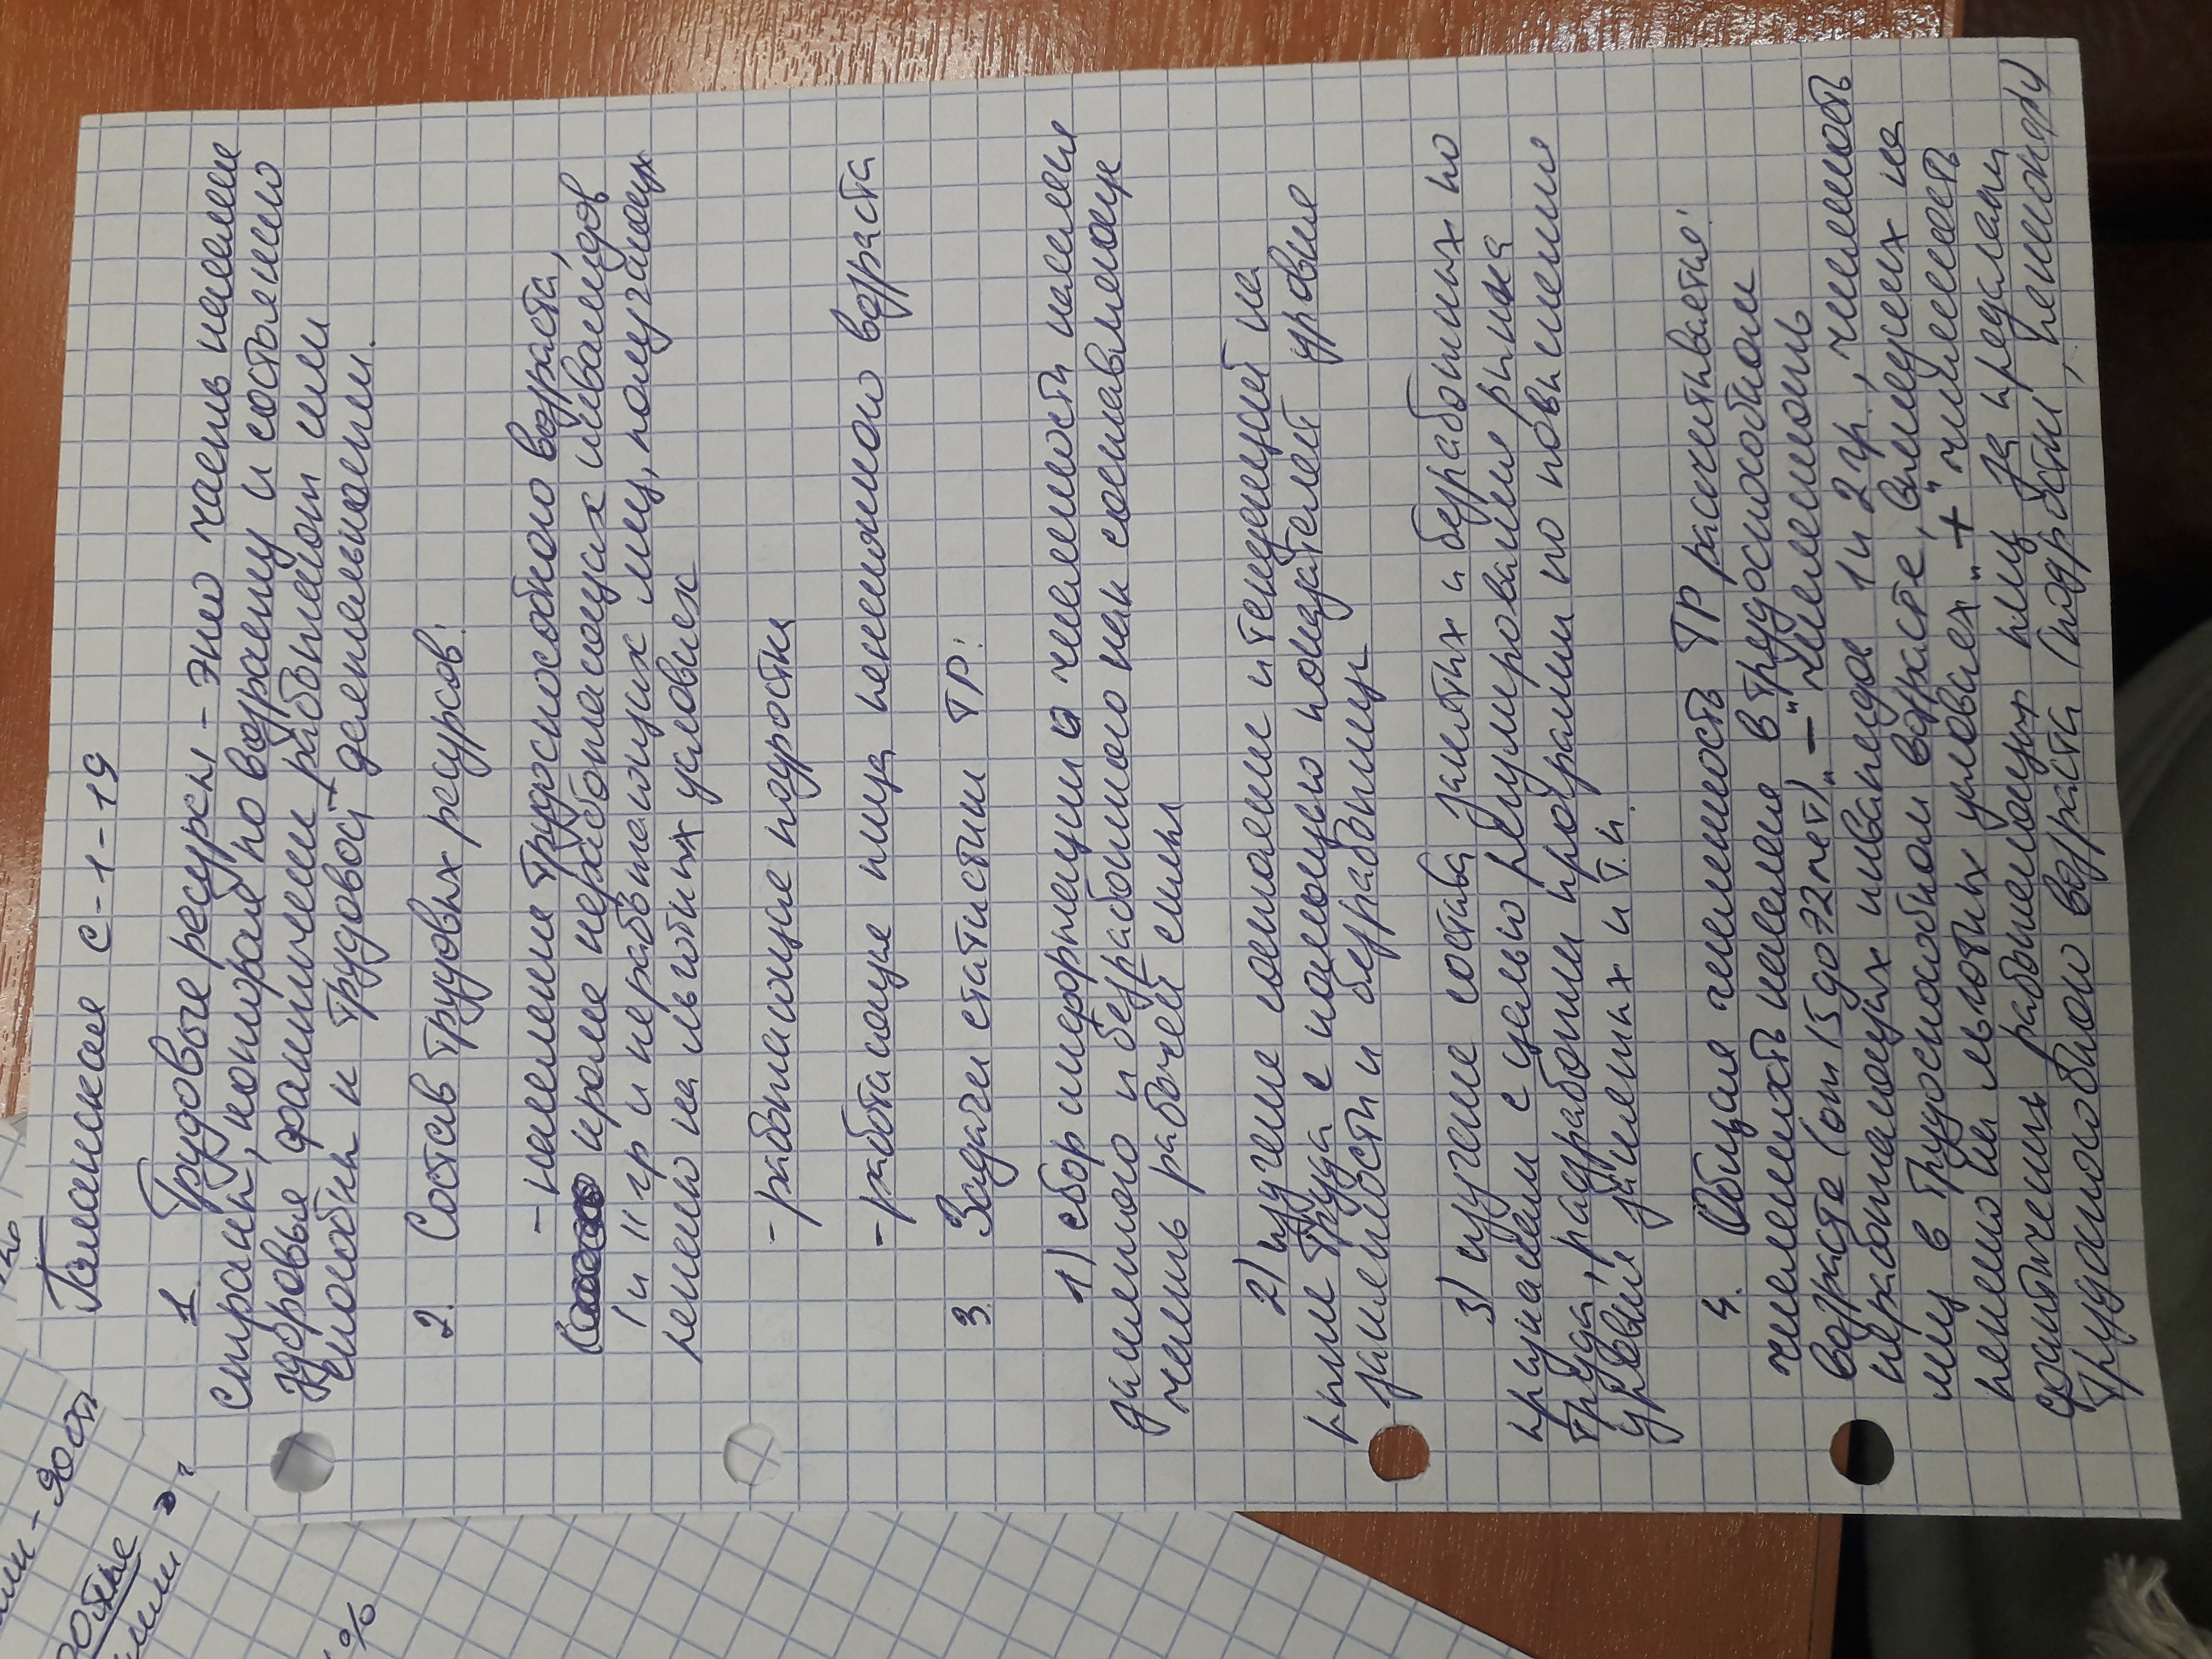 Галанская С-1-19
1. Трудовые ресурсы - это часть населения
страны, которая по возрасту и состоянию
здоровья фактически работает или
способна к трудовой деятельности.
2. Состав трудовых ресурсов:
- население трудоспособного возраста,
кроме неработающих инвалидов
I и II гр и неработающих лиц, получающих
пенсию на льготных условиях
- работающие подростки
- работающие лица пенсионного возраста
3. Задачи статистики ТР:
1) сбор информации о численности населения
занятого и безработного как составляющих
частей рабочей силы
2) изучение состояния и тенденций на
рынке труда с помощью показателей уровня
занятости и безработицы
3) изучение состава занятых и безработных по
признакам с целью регулирования рынка
труда, разработки программ по повышению
уровня занятых и т.п.
4. Общая численность ТР рассчитывается:
численность населения в трудоспособном
возрасте (от 15 до 72 лет) "-" численность
неработающих инвалидов 1 и 2 гр, численность
лиц в трудоспособном возрасте, вышедших на
пенсию на льготных условиях "+" численность
фактически работающих лиц за пределами
трудоспособного возраста (подростки, пенсионеры)
90
%